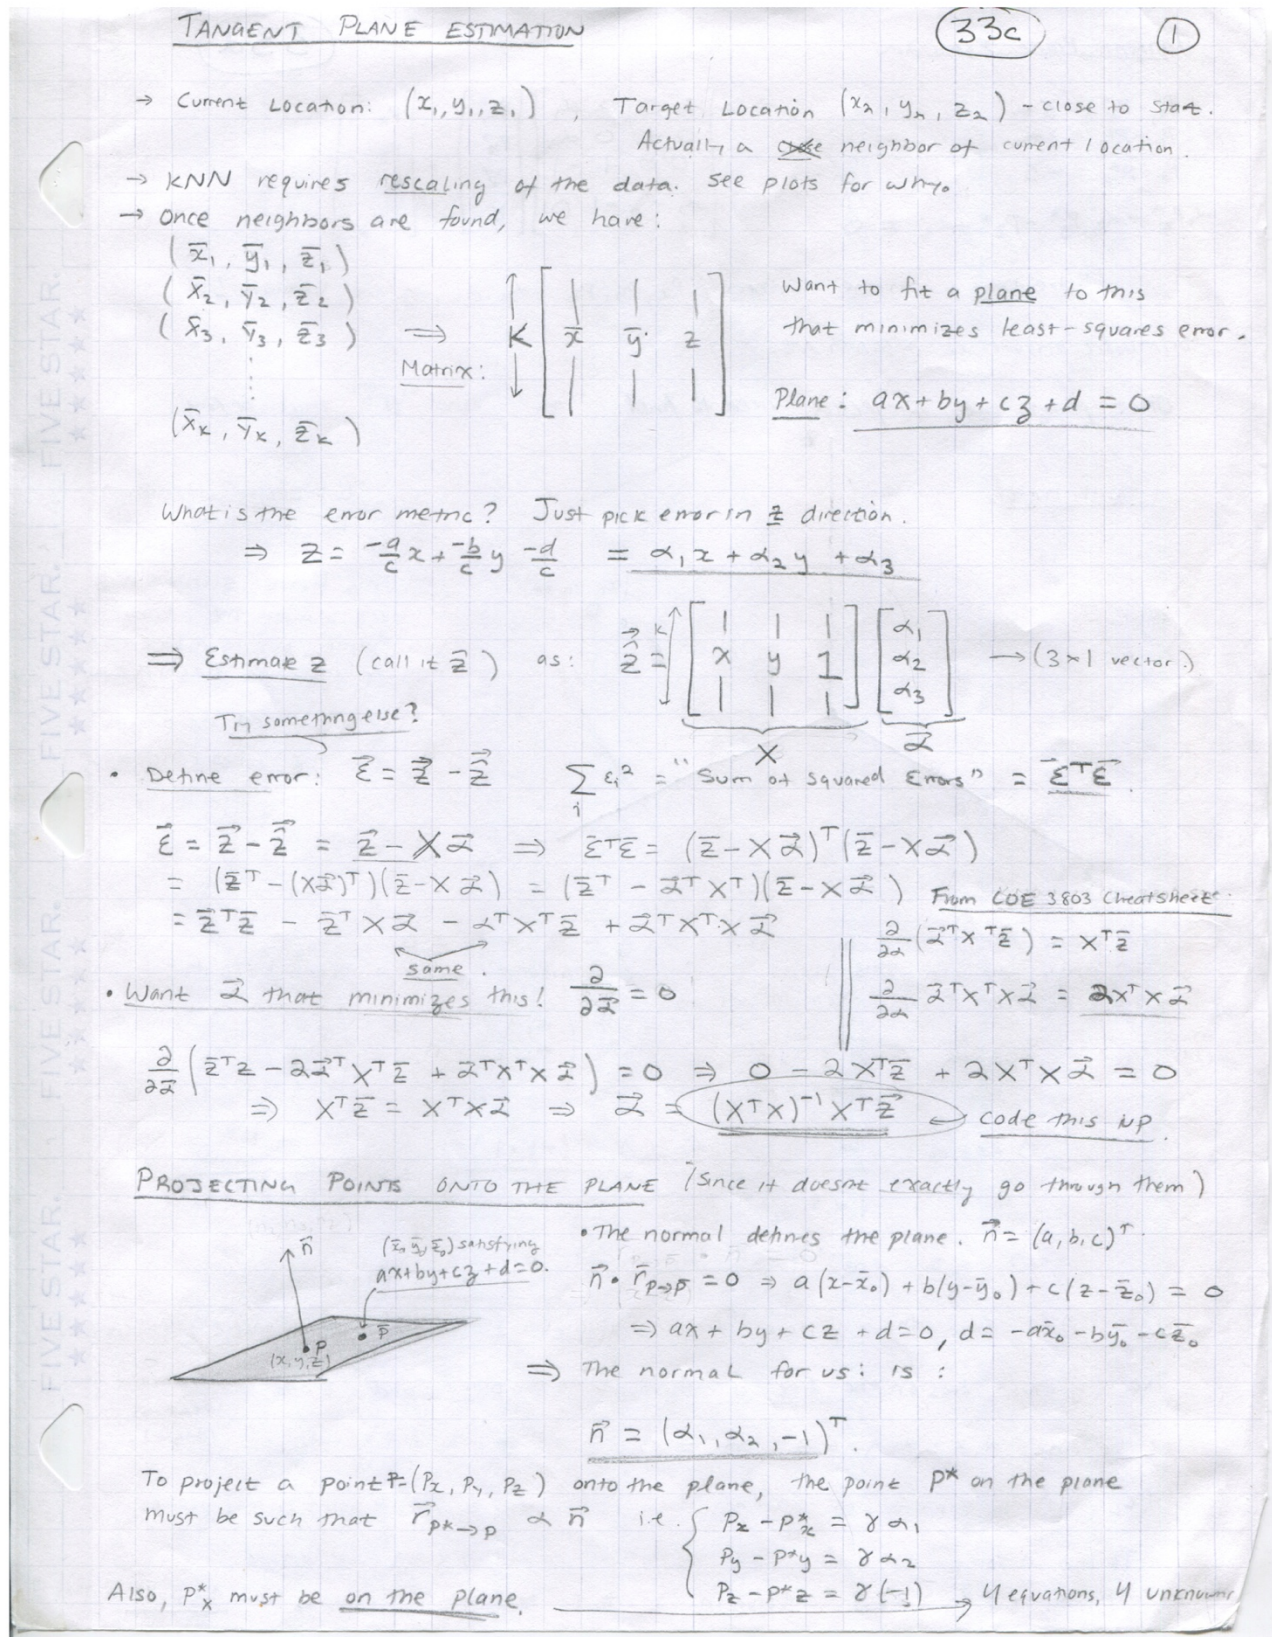 TANGENT PLANE ESTIMATION 33c 1
→ Current Location: (x₁, y₁, z₁) , Target Location (x₂, y₂, z₂) - close to start.
Actually a neighbor of current location.
→ KNN requires rescaling of the data. See plots for why.
→ Once neighbors are found, we have:
(x̄₁, ȳ₁, z̄₁)
(x̄₂, ȳ₂, z̄₂)
(x̄₃, ȳ₃, z̄₃) ⇒ Matrix: K [ x̄ ȳ z ]
⋮
(x̄ₖ, ȳₖ, z̄ₖ)
Want to fit a plane to this
that minimizes least-squares error.
Plane: ax+by+cz+d = 0
What is the error metric? Just pick error in z direction.
⇒ z = -a/c x + -b/c y -d/c = α₁x + α₂y + α₃
⇒ Estimate z (call it ẑ) as: ẑ = K [ x y 1 ] [ α₁ α₂ α₃ ] → (3×1 vector)
X α⃗
Try something else?
• Define error: ε⃗ = z⃗ - ẑ ∑ᵢ εᵢ² = "Sum of squared Errors" = ε⃗ᵀε⃗
ε⃗ = z⃗ - ẑ = z⃗ - Xα⃗ ⇒ ε̄ᵀε̄ = (z̄ - Xα⃗)ᵀ(z̄ - Xα⃗)
= (z̄ᵀ - (Xα⃗)ᵀ)(z̄ - Xα⃗) = (z̄ᵀ - α⃗ᵀXᵀ)(z̄ - Xα⃗)
= z̄ᵀz̄ - z̄ᵀXα⃗ - αᵀXᵀz̄ + α⃗ᵀXᵀXα⃗
same.
From COE 3803 Cheatsheet:
∂/∂α (α⃗ᵀXᵀz̄) = Xᵀz̄
∂/∂α α⃗ᵀXᵀXα⃗ = 2XᵀXα⃗
• Want α⃗ that minimizes this! ∂/∂α⃗ = 0
∂/∂α⃗ (z̄ᵀz - 2α⃗ᵀXᵀz̄ + α⃗ᵀXᵀXα⃗) = 0 ⇒ 0 - 2Xᵀz̄ + 2XᵀXα⃗ = 0
⇒ Xᵀz̄ = XᵀXα⃗ ⇒ α⃗ = (XᵀX)⁻¹Xᵀz⃗ ← code this up.
PROJECTING POINTS ONTO THE PLANE (Since it doesnt exactly go through them)
n⃗
(x̄₀, ȳ₀, z̄₀) satisfying
ax+by+cz+d=0.
p̄
P
(x,y,z)
• The normal defines the plane. n⃗ = (a,b,c)ᵀ.
n⃗ • r⃗ₚ→p̄ = 0 ⇒ a(x-x̄₀) + b(y-ȳ₀) + c(z-z̄₀) = 0
⇒ ax + by + cz + d=0, d= -ax̄₀ -bȳ₀ -cz̄₀
⇒ The normal for us: is :
n⃗ = (α₁, α₂, -1)ᵀ.
To project a point P=(Px, Py, Pz) onto the plane, the point P* on the plane
must be such that r⃗ₚ*→ₚ α n⃗ i.e. { Px - P*x = γα₁
Py - P*y = γα₂
Pz - P*z = γ(-1)
Also, P*x must be on the plane. → 4 equations, 4 unknowns